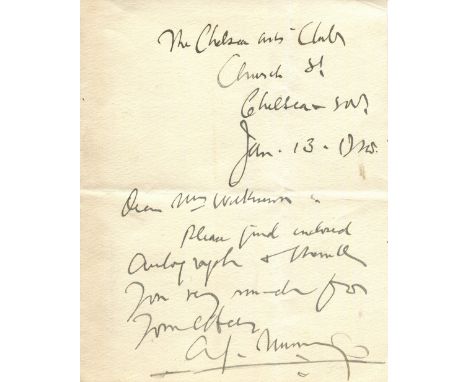 The Chelsea Arts Club
Church St
Chelsea S.W.
Jan. 13.
Dear Mrs
Please find enclosed
Autograph & thank
You very much for
Your letter
A.J. Munnings